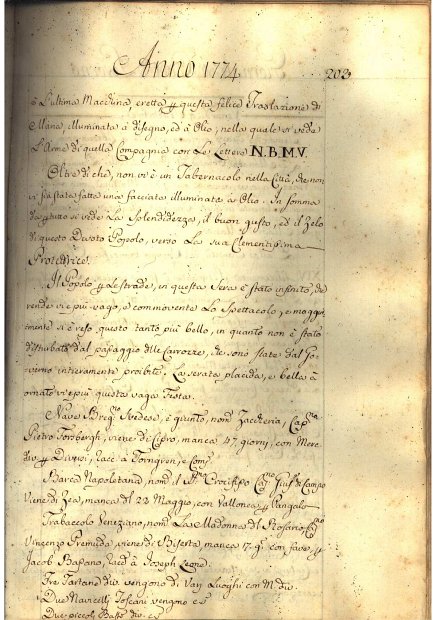 Anno 1774 203
è L'ultima Macchina, eretta p questa felice Traslazione di
Maria, illuminata à disegno, ed à Olio, nella quale si vede
L'Arme di quella Compagnia con Le Lettere N.B.M.V.
Oltre di che, non vi è un Tabernacolo nella Città, che non
vi sia stata fatta una facciata illuminata à Olio. In somma
da p tutto si vede La Splendidezza, il buon gusto, ed il Zelo
di questo Divoto Popolo, verso La sua Clementissima
Protettrice.
Il Popolo p Le strade, in questa Sera è stato infinito, che
rende vie più vago, e commovente Lo Spettacolo, e maggior
mente si è reso questo tanto più bello, in quanto non è stato
disturbato dal passaggio dlle Carrozze, che sono state dal Go-
verno intieramente proibite. La serata placida, e bella à
ornato vie più questa vaga Festa.
Nave Svedese, è giunto, nomᵗᵒ Zaccheria, Capⁿᵒ
Pietro Forsbergh, viene di Cipro, manca 47 giorni, con Mere
div p Diversi, racc à Torngren, e Comp
Barca Napoletana nomᵗᵒ il SSᵐᵒ Crocifisso Capⁿᵒ Giusᵉ di Campo
Viene di Zea, manca dl 23 Maggio, con Vallonea p Vangalo
Trabaccolo Veneziano, nomᵗᵒ La Madonna dl Rosario Capⁿᵒ
Vincenzo Premuda, viene di Biserta manca 17 gⁱ con fave, p
Jacob Bassano, racc à Joseph Leone.
Tre Tartane div vengono di Varj Luoghi con M. div
Due Navicelli Toscani vengono
Due piccoli div